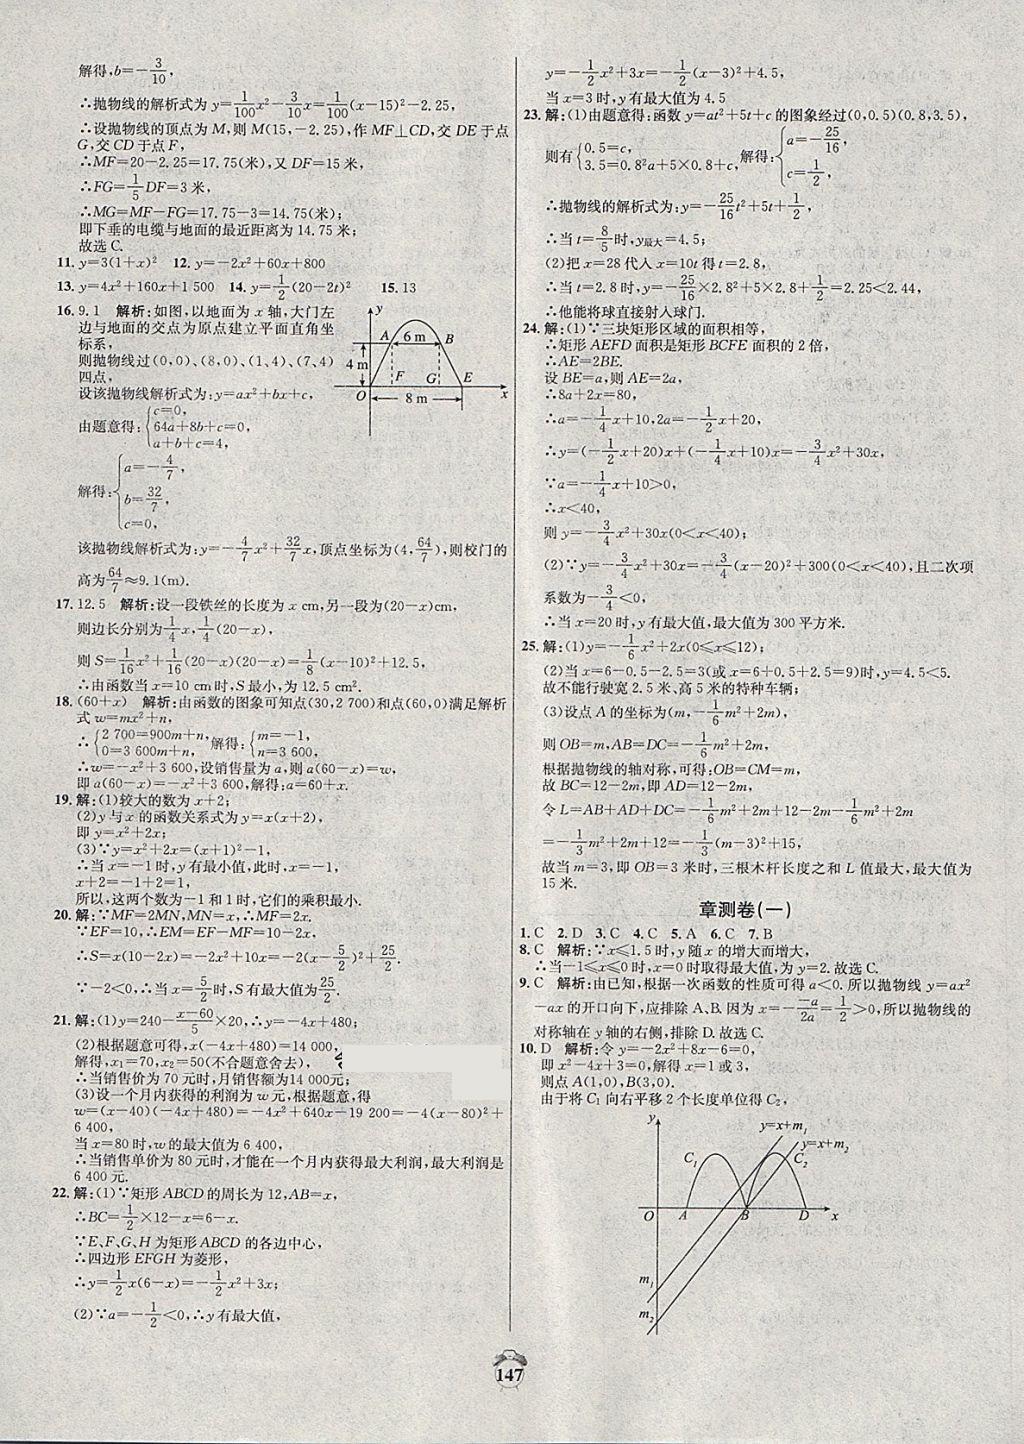 解得,b=-3/10,
∴抛物线的解析式为 y=1/100x²-3/10x=1/100(x-15)²-2.25,
∴设抛物线的顶点为 M,则 M(15,-2.25),作 MF⊥CD,交 DE 于点
G,交 CD 于点 F,
∴MF=20-2.25=17.75(米),又 DF=15 米,
∴FG=1/5DF=3 米,
∴MG=MF-FG=17.75-3=14.75(米);
即下垂的电缆与地面的最近距离为 14.75 米;
故选 C.
11. y=3(1+x)² 12. y=-2x²+60x+800
13. y=4x²+160x+1 500 14. y=1/2(20-2t)² 15. 13
16. 9.1 解析:如图,以地面为 x 轴,大门左
边与地面的交点为原点建立平面直角坐
标系,
则抛物线过(0,0)、(8,0)、(1,4)、(7,4)
四点,
设该抛物线解析式为:y=ax²+bx+c,
由题意得:{c=0,
64a+8b+c=0,
a+b+c=4,
解得:{a=-4/7,
b=32/7,
c=0,
y
A 6 m B
4 m
F G E
O 8 m x
该抛物线解析式为:y=-4/7x²+32/7x,顶点坐标为(4,64/7),则校门的
高为64/7≈9.1(m).
17. 12.5 解析:设一段铁丝的长度为 x cm,另一段为(20-x)cm,
则边长分别为1/4x,1/4(20-x),
则 S=1/16x²+1/16(20-x)(20-x)=1/8(x-10)²+12.5,
∴由函数当 x=10 cm 时,S 最小,为 12.5 cm².
18. (60+x) 解析:由函数的图象可知点(30,2 700)和点(60,0)满足解析
式 w=mx²+n,
∴{2 700=900m+n,
0=3 600m+n, 解得:{m=-1,
n=3 600,
∴w=-x²+3 600,设销售量为 a,则 a(60-x)=w,
即 a(60-x)=-x²+3 600,解得:a=60+x.
19. 解:(1)较大的数为 x+2;
(2)y 与 x 的函数关系式为 y=x(x+2),
即 y=x²+2x;
(3)∵y=x²+2x=(x+1)²-1,
∴当 x=-1 时,y 有最小值,此时,x=-1,
x+2=-1+2=1,
所以,这两个数为-1 和 1 时,它们的乘积最小.
20. 解:∵MF=2MN,MN=x,∴MF=2x.
∵EF=10,∴EM=EF-MF=10-2x,
∴S=x(10-2x)=-2x²+10x=-2(x-5/2)²+25/2.
∵-2<0,∴当 x=5/2时,S 有最大值25/2.
21. 解:(1)y=240-(x-60)/5×20,∴y=-4x+480;
(2)根据题意可得,x(-4x+480)=14 000,
解得,x₁=70,x₂=50(不合题意舍去),
∴当销售价为 70 元时,月销售额为14 000元;
(3)设一个月内获得的利润为 w 元,根据题意,得
w=(x-40)(-4x+480)=-4x²+640x-19 200=-4(x-80)²+
6 400,
当 x=80 时,w 的最大值为 6 400,
∴当销售单价为 80 元时,才能在一个月内获得最大利润,最大利润是
6 400 元.
22. 解:(1)∵矩形 ABCD 的周长为 12,AB=x,
∴BC=1/2×12-x=6-x.
∵E、F、G、H 为矩形 ABCD 的各边中心,
∴四边形 EFGH 为菱形,
∴y=1/2x(6-x)=-1/2x²+3x;
(2)∵a=-1/2<0,∴y 有最大值,
y=-1/2x²+3x=-1/2(x-3)²+4.5,
当 x=3 时,y 有最大值为 4.5
23. 解:(1)由题意得:函数 y=at²+5t+c 的图象经过(0,0.5)(0.8,3.5),
则有{0.5=c,
3.5=0.8²a+5×0.8+c, 解得:{a=-25/16,
c=1/2,
∴抛物线的解析式为:y=-25/16t²+5t+1/2,
∴当 t=8/5时,y最大=4.5;
(2)把 x=28 代入 x=10t 得 t=2.8,
∴当 t=2.8 时,y=-25/16×2.8²+5×2.8+1/2=2.25<2.44,
∴他能将球直接射入球门.
24. 解:(1)∵三块矩形区域的面积相等,
∴矩形 AEFD 面积是矩形 BCFE 面积的 2 倍,
∴AE=2BE.
设 BE=a,则 AE=2a,
∴8a+2x=80,
∴a=-1/4x+10,2a=-1/2x+20,
∴y=(-1/2x+20)x+(-1/4x+10)x=-3/4x²+30x,
∵a=-1/4x+10>0,
∴x<40,
则 y=-3/4x²+30x(0<x<40);
(2)∵y=-3/4x²+30x=-3/4(x-20)²+300(0<x<40),且二次项
系数为-3/4<0,
∴当 x=20 时,y 有最大值,最大值为 300 平方米.
25. 解:(1)y=-1/6x²+2x(0≤x≤12);
(2)当 x=6-0.5-2.5=3(或 x=6+0.5+2.5=9)时,y=4.5<5.
故不能行驶宽 2.5 米、高 5 米的特种车辆;
(3)设点 A 的坐标为(m,-1/6m²+2m),
则 OB=m,AB=DC=-1/6m²+2m,
根据抛物线的轴对称,可得:OB=CM=m,
故 BC=12-2m,即 AD=12-2m,
令 L=AB+AD+DC=-1/6m²+2m+12-2m-1/6m²+2m
=-1/3m²+2m+12=-1/3(m-3)²+15,
故当 m=3,即 OB=3 米时,三根木杆长度之和 L 值最大,最大值为
15 米.
章测卷(一)
1. C 2. D 3. C 4. C 5. A 6. C 7. B
8. C 解析:∵x≤1.5 时,y 随 x 的增大而增大,
∴当-1≤x≤0 时,x=0 时取得最大值,为 y=2.故选 C.
9. C 解析:由已知,根据一次函数的性质可得 a<0. 所以抛物线 y=ax²
-ax 的开口向下,应排除 A、B. 因为 x=-(-a)/2a=1/2>0,所以抛物线的
对称轴在 y 轴的右侧,排除 D. 故选 C.
10. D 解析:令 y=-2x²+8x-6=0,
即 x²-4x+3=0,解得 x=1 或 3,
则点 A(1,0),B(3,0).
由于将 C₁ 向右平移 2 个长度单位得 C₂,
y
y=x+m₁
y=x+m₂
C₁ C₂
O A B D x
m₁
m₂
147